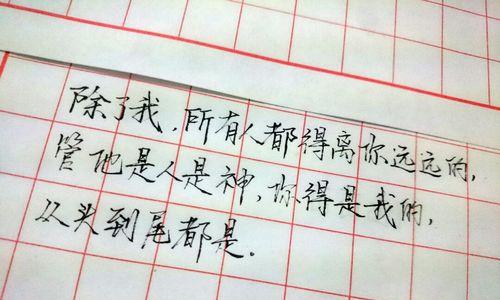 除了我,所有人都得离你远远的,
管他是人是神,你得是我的,
从头到尾都是.